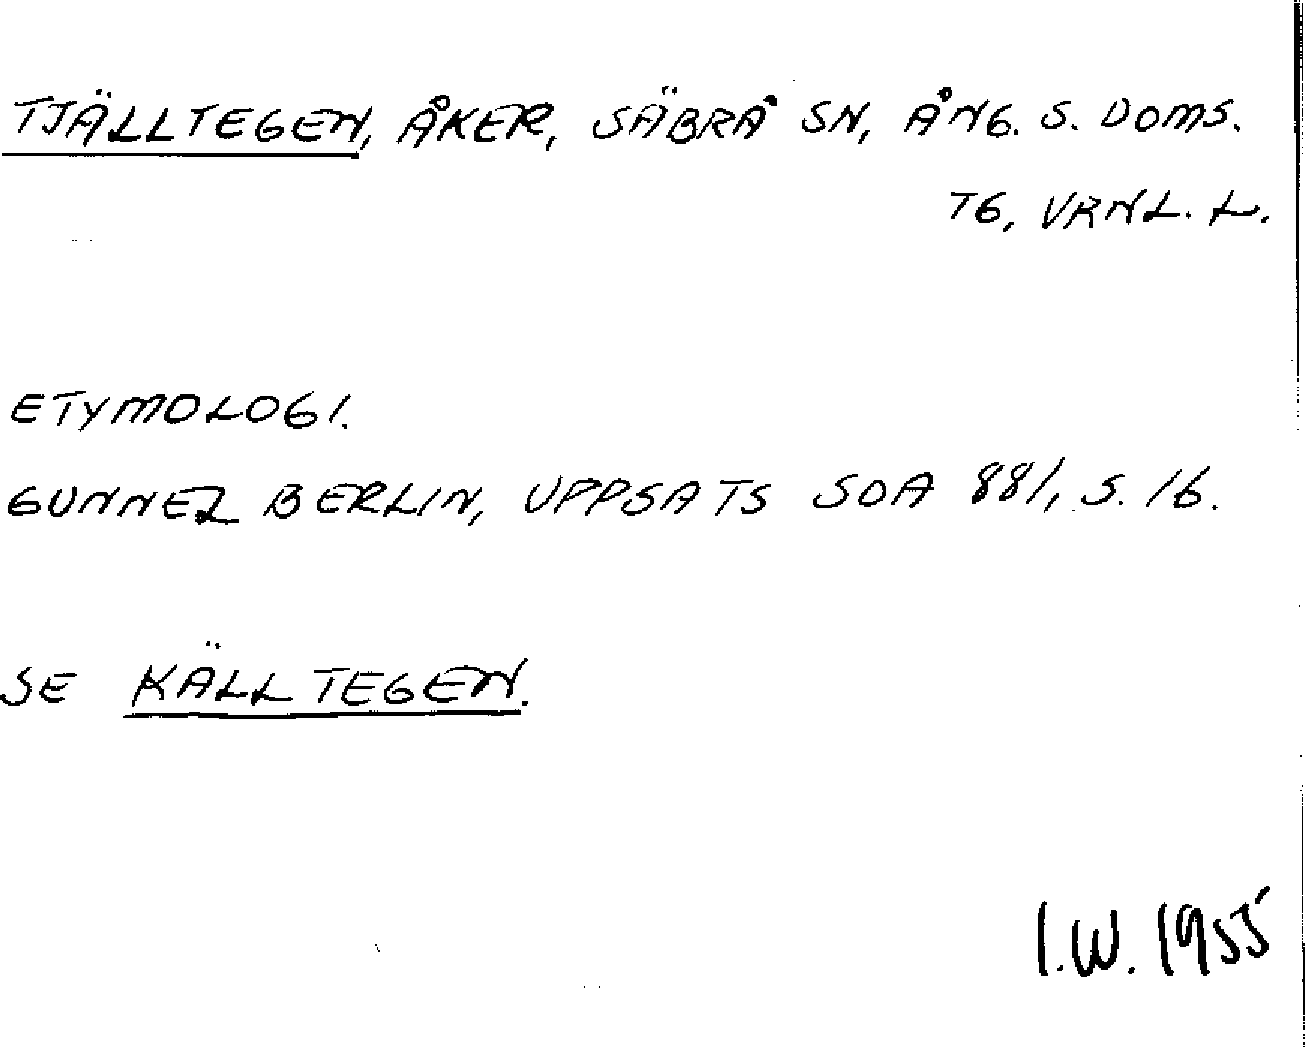 TJÄLLTEGEN, ÅKER, SÄBRÅ SN, ÅNG. S. DOMS.
TG, VRNL. L.
ETYMOLOGI.
GUNNEL BERLIN, UPPSATS SOA 881, S. 16.
SE KÄLLTEGEN.
I.W. 1955